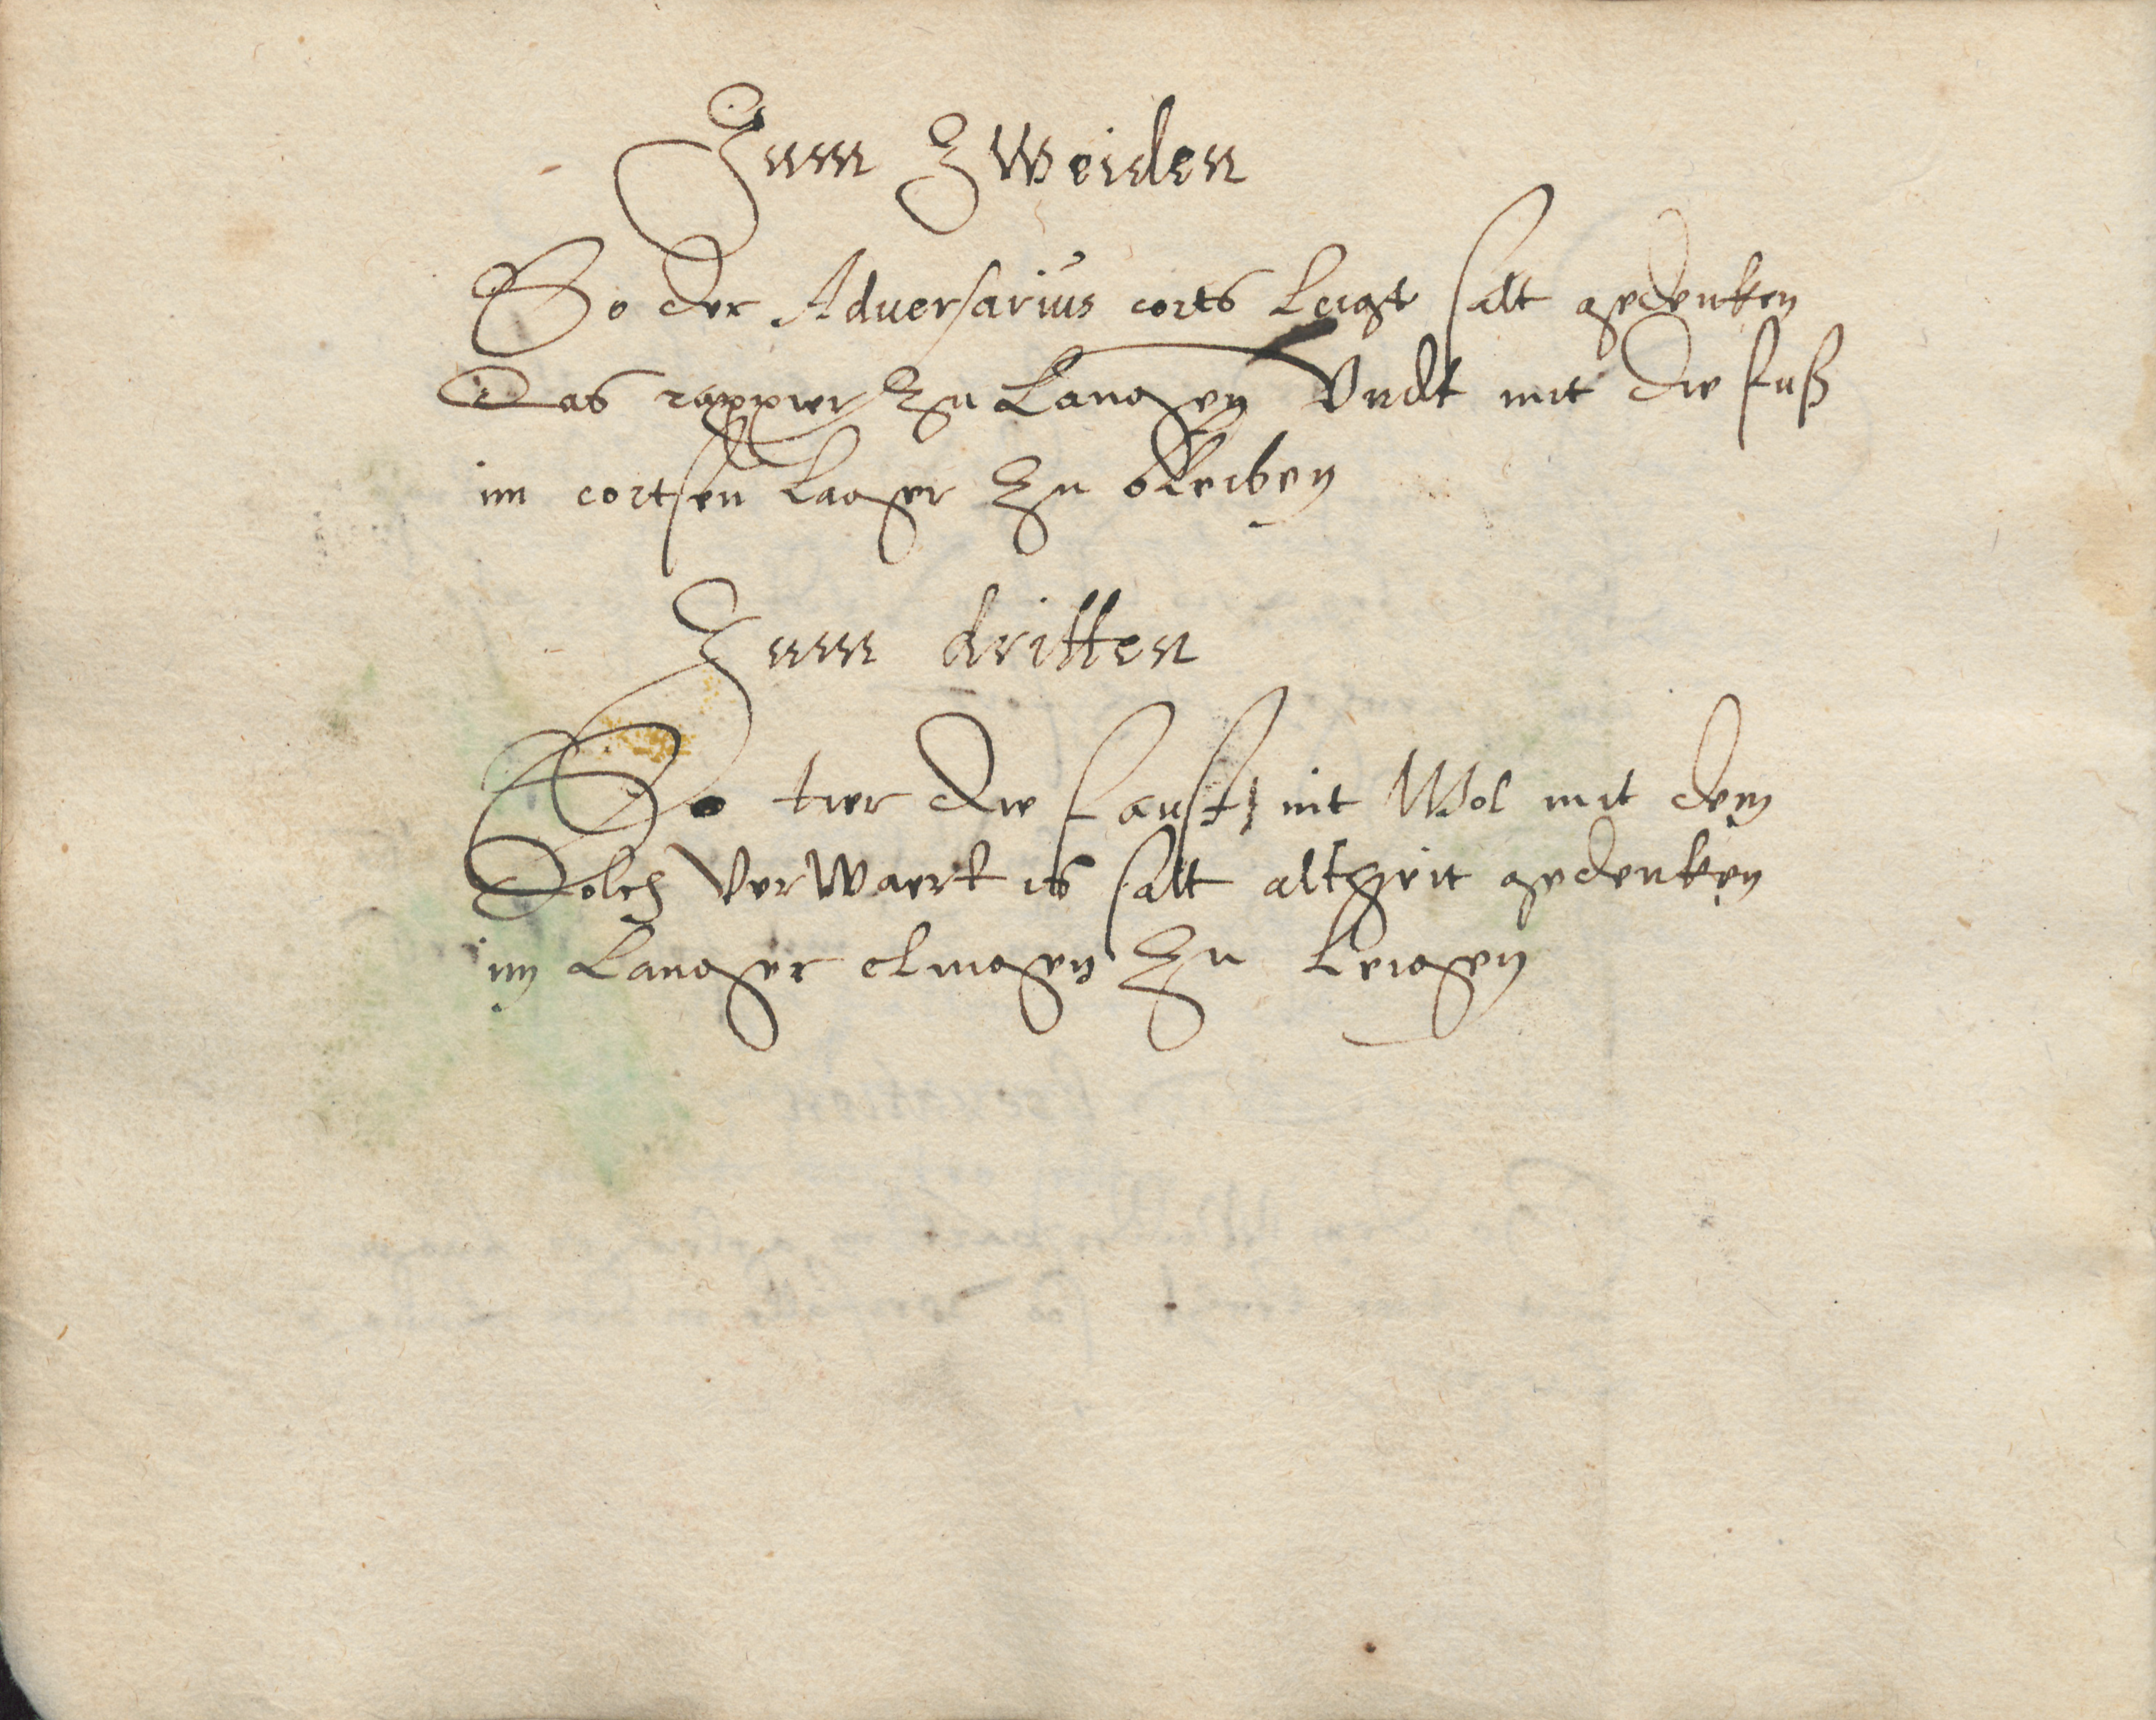 Zum Zweiden
So der Adversarius corts leigt salt gedenken
Das rappier zu Langen Undt mit die fuß
im cortsen Lager Zu bleiben
Zum dritten
So dier die faust nit Wol mit dem
Dolch VerWaert is salt altzeit gedenken
im Langer clingen Zu leigen